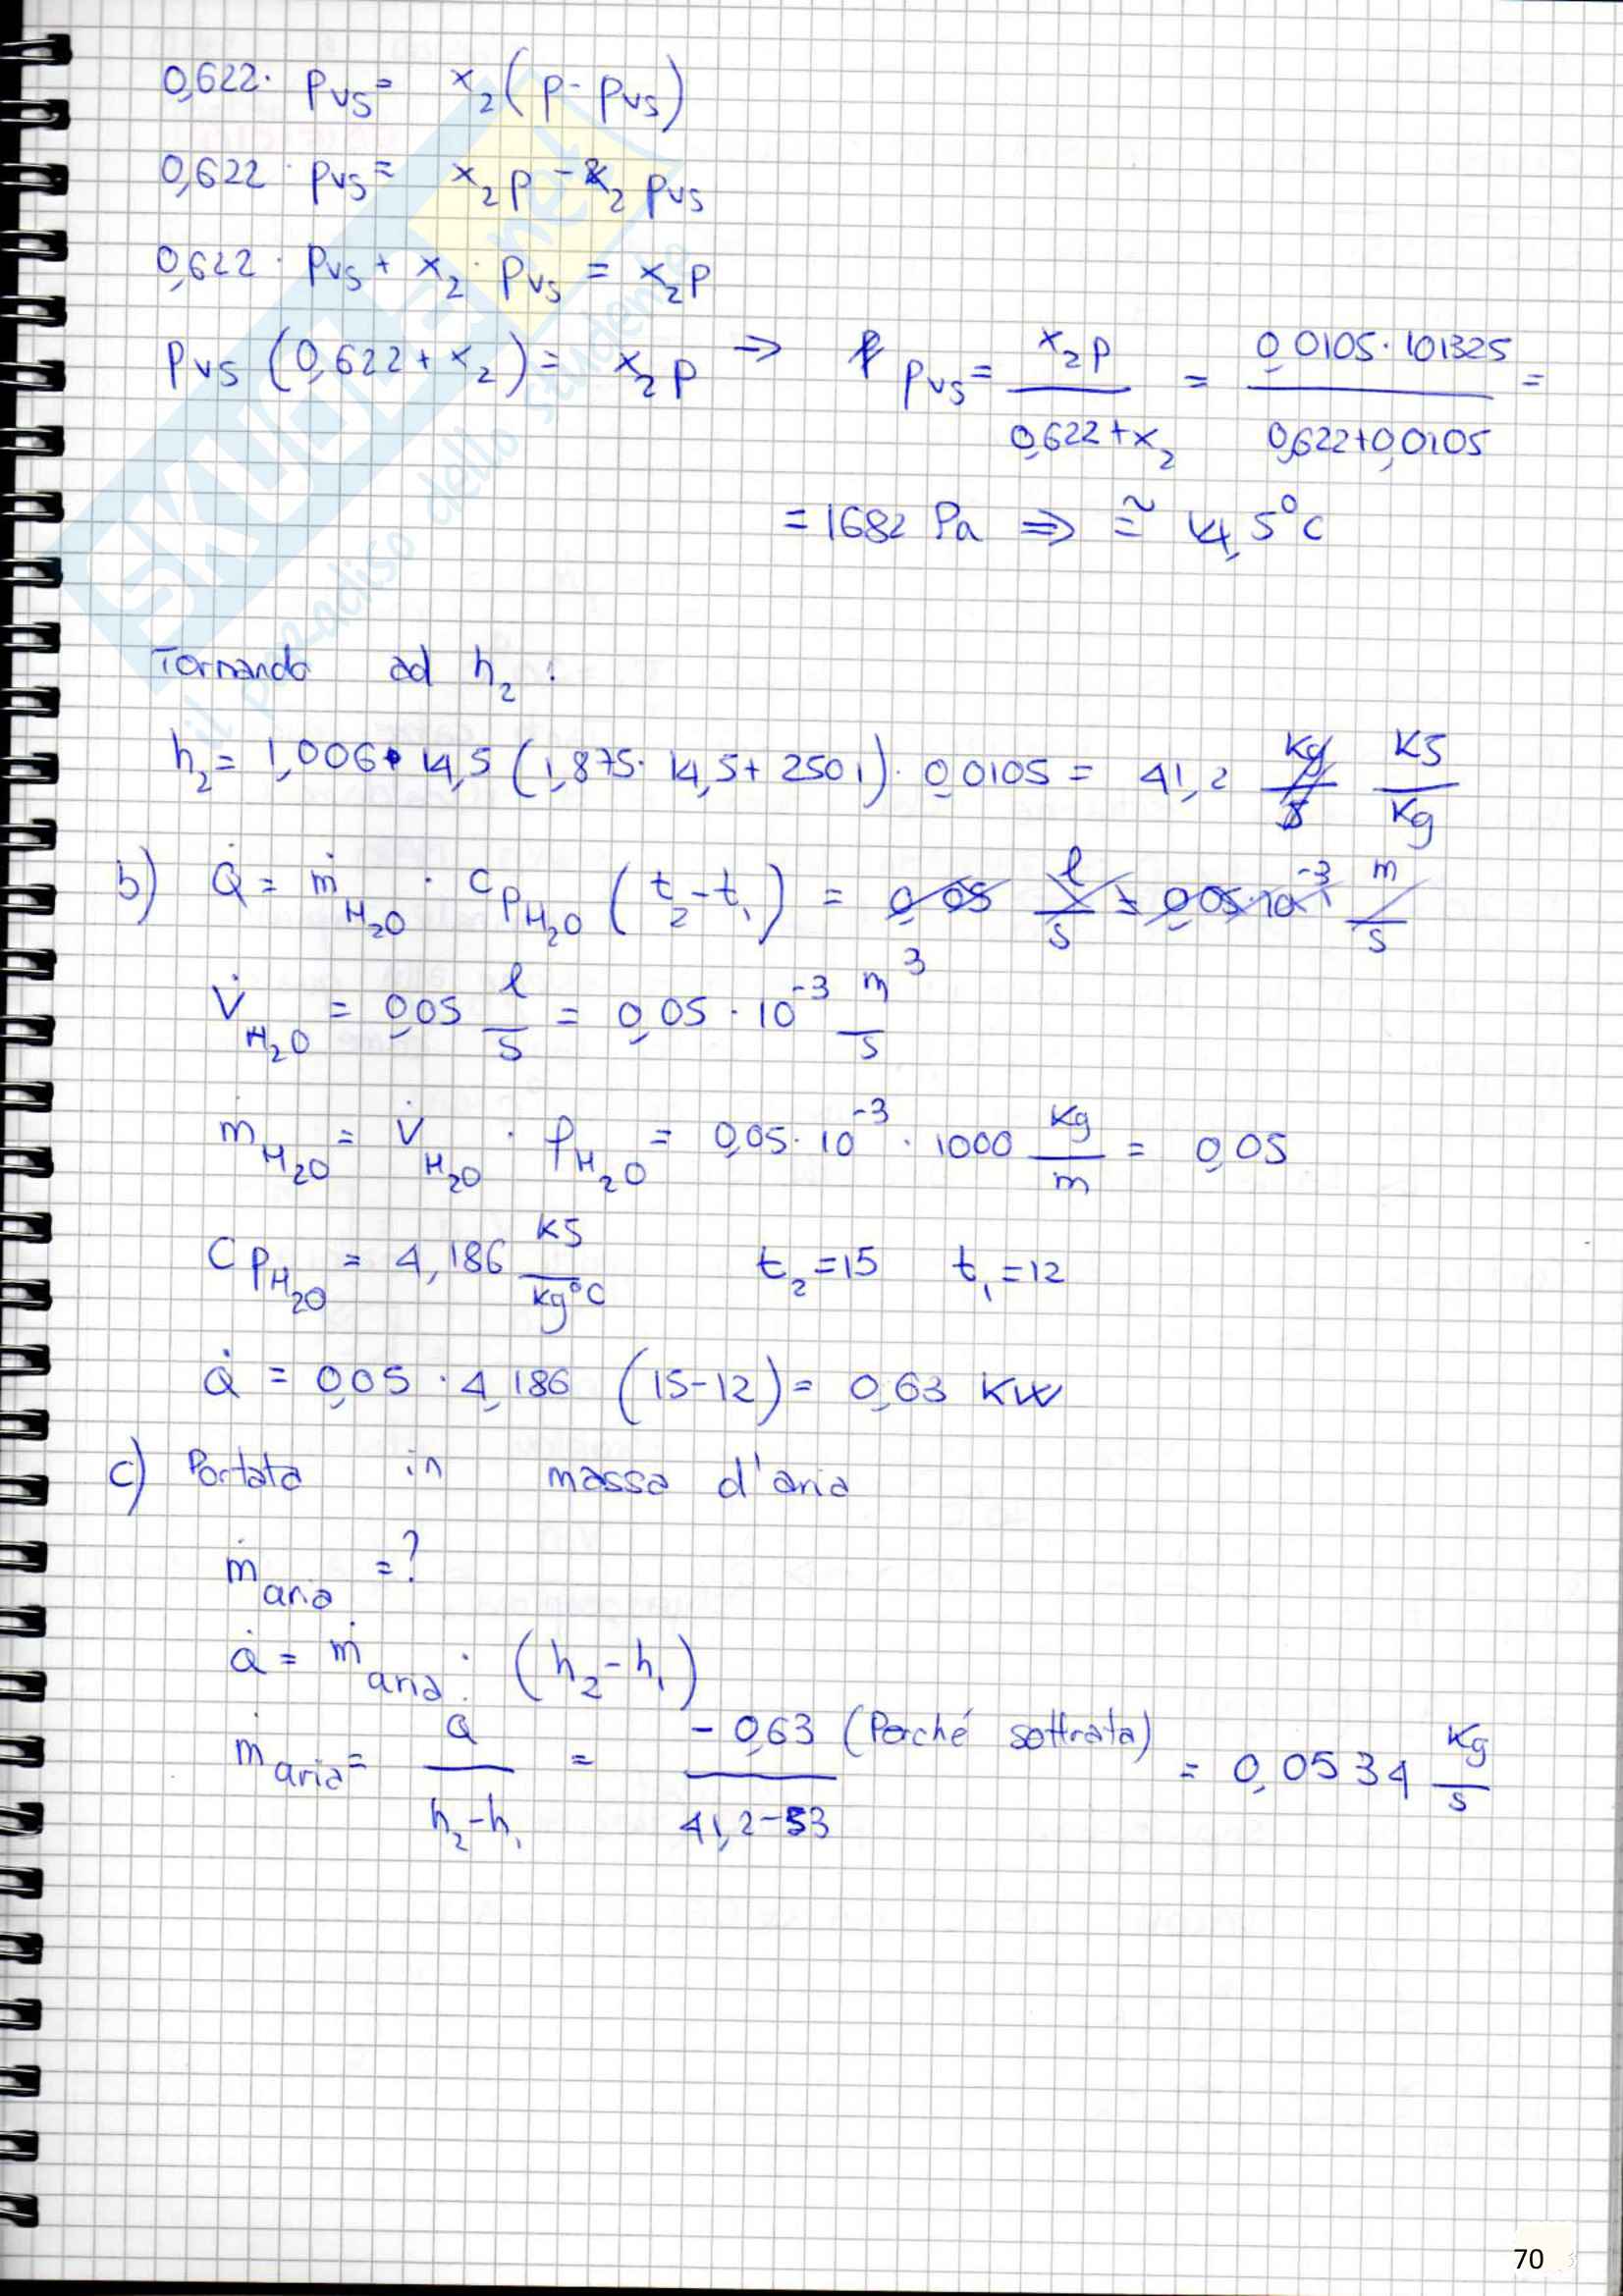 0,622· pvs = x2 (p - pvs)
0,622 · pvs = x2 p - x2 pvs
0,622 · pvs + x2 · pvs = x2 p
pvs (0,622 + x2) = x2 p ⇒ pvs = x2 p / (0,622 + x2) = 0,0105 · 101325 / (0,622+0,0105) =
= 1682 Pa ⇒ ≅ 14,5°C
Tornando ad h2 :
h2 = 1,006 · 14,5 (1,875 · 14,5 + 2501) · 0,0105 = 41,2 kg/s KJ/Kg
b) Q̇ = ṁH2O · cpH2O (t2 - t1) = 0,05 l/s = 0,05·10^-3 m/s
V̇H2O = 0,05 l/s = 0,05 · 10^-3 m^3/s
ṁH2O = V̇H2O · ρH2O = 0,05 · 10^-3 · 1000 Kg/m = 0,05
CpH2O = 4,186 KJ/kg°C t2 = 15 t1 = 12
Q̇ = 0,05 · 4,186 (15-12) = 0,63 KW
c) Portata in massa d'aria
ṁaria = ?
Q̇ = ṁaria · (h2 - h1)
ṁaria = Q / (h2 - h1) = - 0,63 (Perché sottrata) / (41,2 - 53) = 0,0534 Kg/s
SKUOLA.net
il paradiso dello studente
70